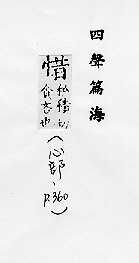 四聲篇海
惜
私積切
貪吝也
(心部、P.360)